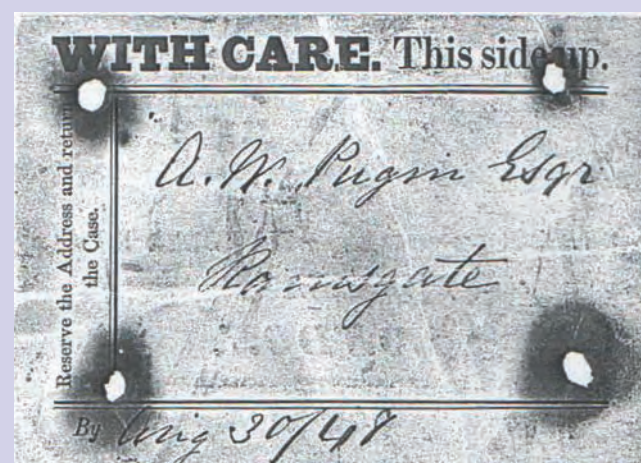 WITH CARE. This side up.
Reserve the Address and return
the Case.
A. W. Pugin Esqr
Ramsgate
By Aug 30/48